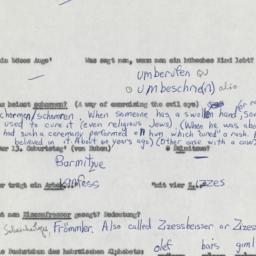 in böses Aug'
Was sagt man, wenn man ein hübsches Kind lobt?
umberufen
umbeschrie(n) also
as heisst schurmen? (A way of exorcising the evil eye)
schoemen/schommen. When someone has a swollen hand, som
used to cure it (even religious Jews). (When he was abo
had such a ceremony performed on him which "cured" a rash. P
believed in it. About 60 years ago) (Other case with a cow)
er 13. Geburtstag' (von Buben)
Barmitzve
er trägt ein
Kanfess
'bit vier Z
Zizzes
t man Zizesfresser gesagt? Bedeutung?
Frömmler. Also called Zizessbeisser or Zizes
ie Buchstaben des hebräischen Alphabets:
olef bais giml